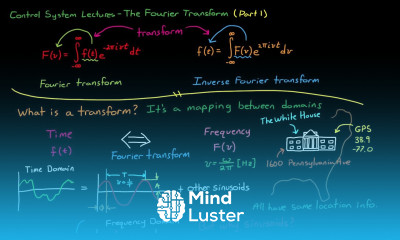 Control System Lectures - The Fourier Transform (Part 1)
transform
F(ν) = ∫ f(t) e^-2πiνt dt
f(t) = ∫ F(ν) e^2πiνt dν
-∞
∞
-∞
Fourier transform
Inverse Fourier transform
What is a transform? It's a mapping between domains
Time
f(t)
⇔
Fourier transform
Frequency
F(ν)
ν = ω/2π [Hz]
The White House
GPS
38.9
-77.0
1600 Pennsylvania Ave
Time Domain
=
T
+ other sinusoids
Mind
Luster
All have same location info.
Frequency